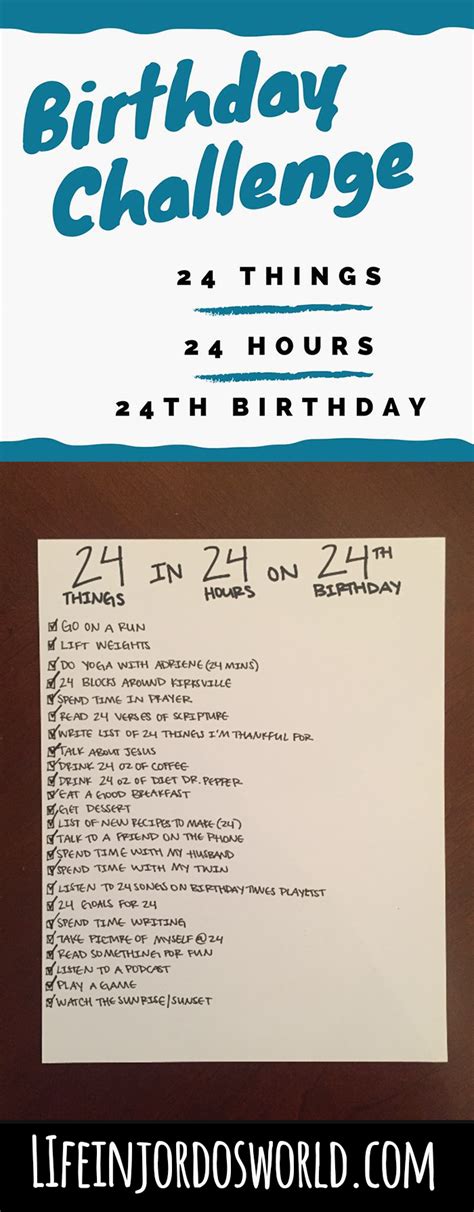 Birthday
Challenge
24 THINGS
24 HOURS
24TH BIRTHDAY
24 IN 24 ON 24TH
THINGS HOURS BIRTHDAY
GO ON A RUN
LIFT WEIGHTS
DO YOGA WITH ADRIENE (24 MINS)
24 BLOCKS AROUND KIRKSVILLE
SPEND TIME IN PRAYER
READ 24 VERSES OF SCRIPTURE
WRITE LIST OF 24 THINGS I'M THANKFUL FOR
TALK ABOUT JESUS
DRINK 24 OZ OF COFFEE
DRINK 24 OZ OF DIET DR. PEPPER
EAT A GOOD BREAKFAST
GET DESSERT
LIST OF NEW RECIPES TO MAKE (24)
TALK TO A FRIEND ON THE PHONE
SPEND TIME WITH MY HUSBAND
SPEND TIME WITH MY TWIN
LISTEN TO 24 SONGS ON BIRTHDAY TUNES PLAYLIST
24 GOALS FOR 24
SPEND TIME WRITING
TAKE PICTURE OF MYSELF @ 24
READ SOMETHING FOR FUN
LISTEN TO A PODCAST
PLAY A GAME
WATCH THE SUNRISE/SUNSET
LIFEINJORDOSWORLD.COM